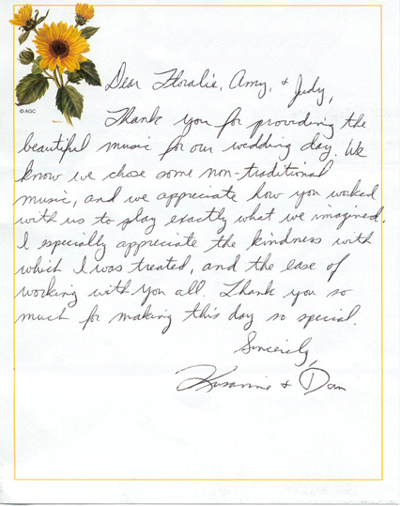 © AGC
Dear Floralie, Amy, & Judy,
Thank you for providing the
beautiful music for our wedding day. We
know we chose some non-traditional
music, and we appreciate how you worked
with us to play exactly what we imagined.
I especially appreciate the kindness with
which I was treated, and the ease of
working with you all. Thank you so
much for making this day so special.
Sincerely,
& Dan